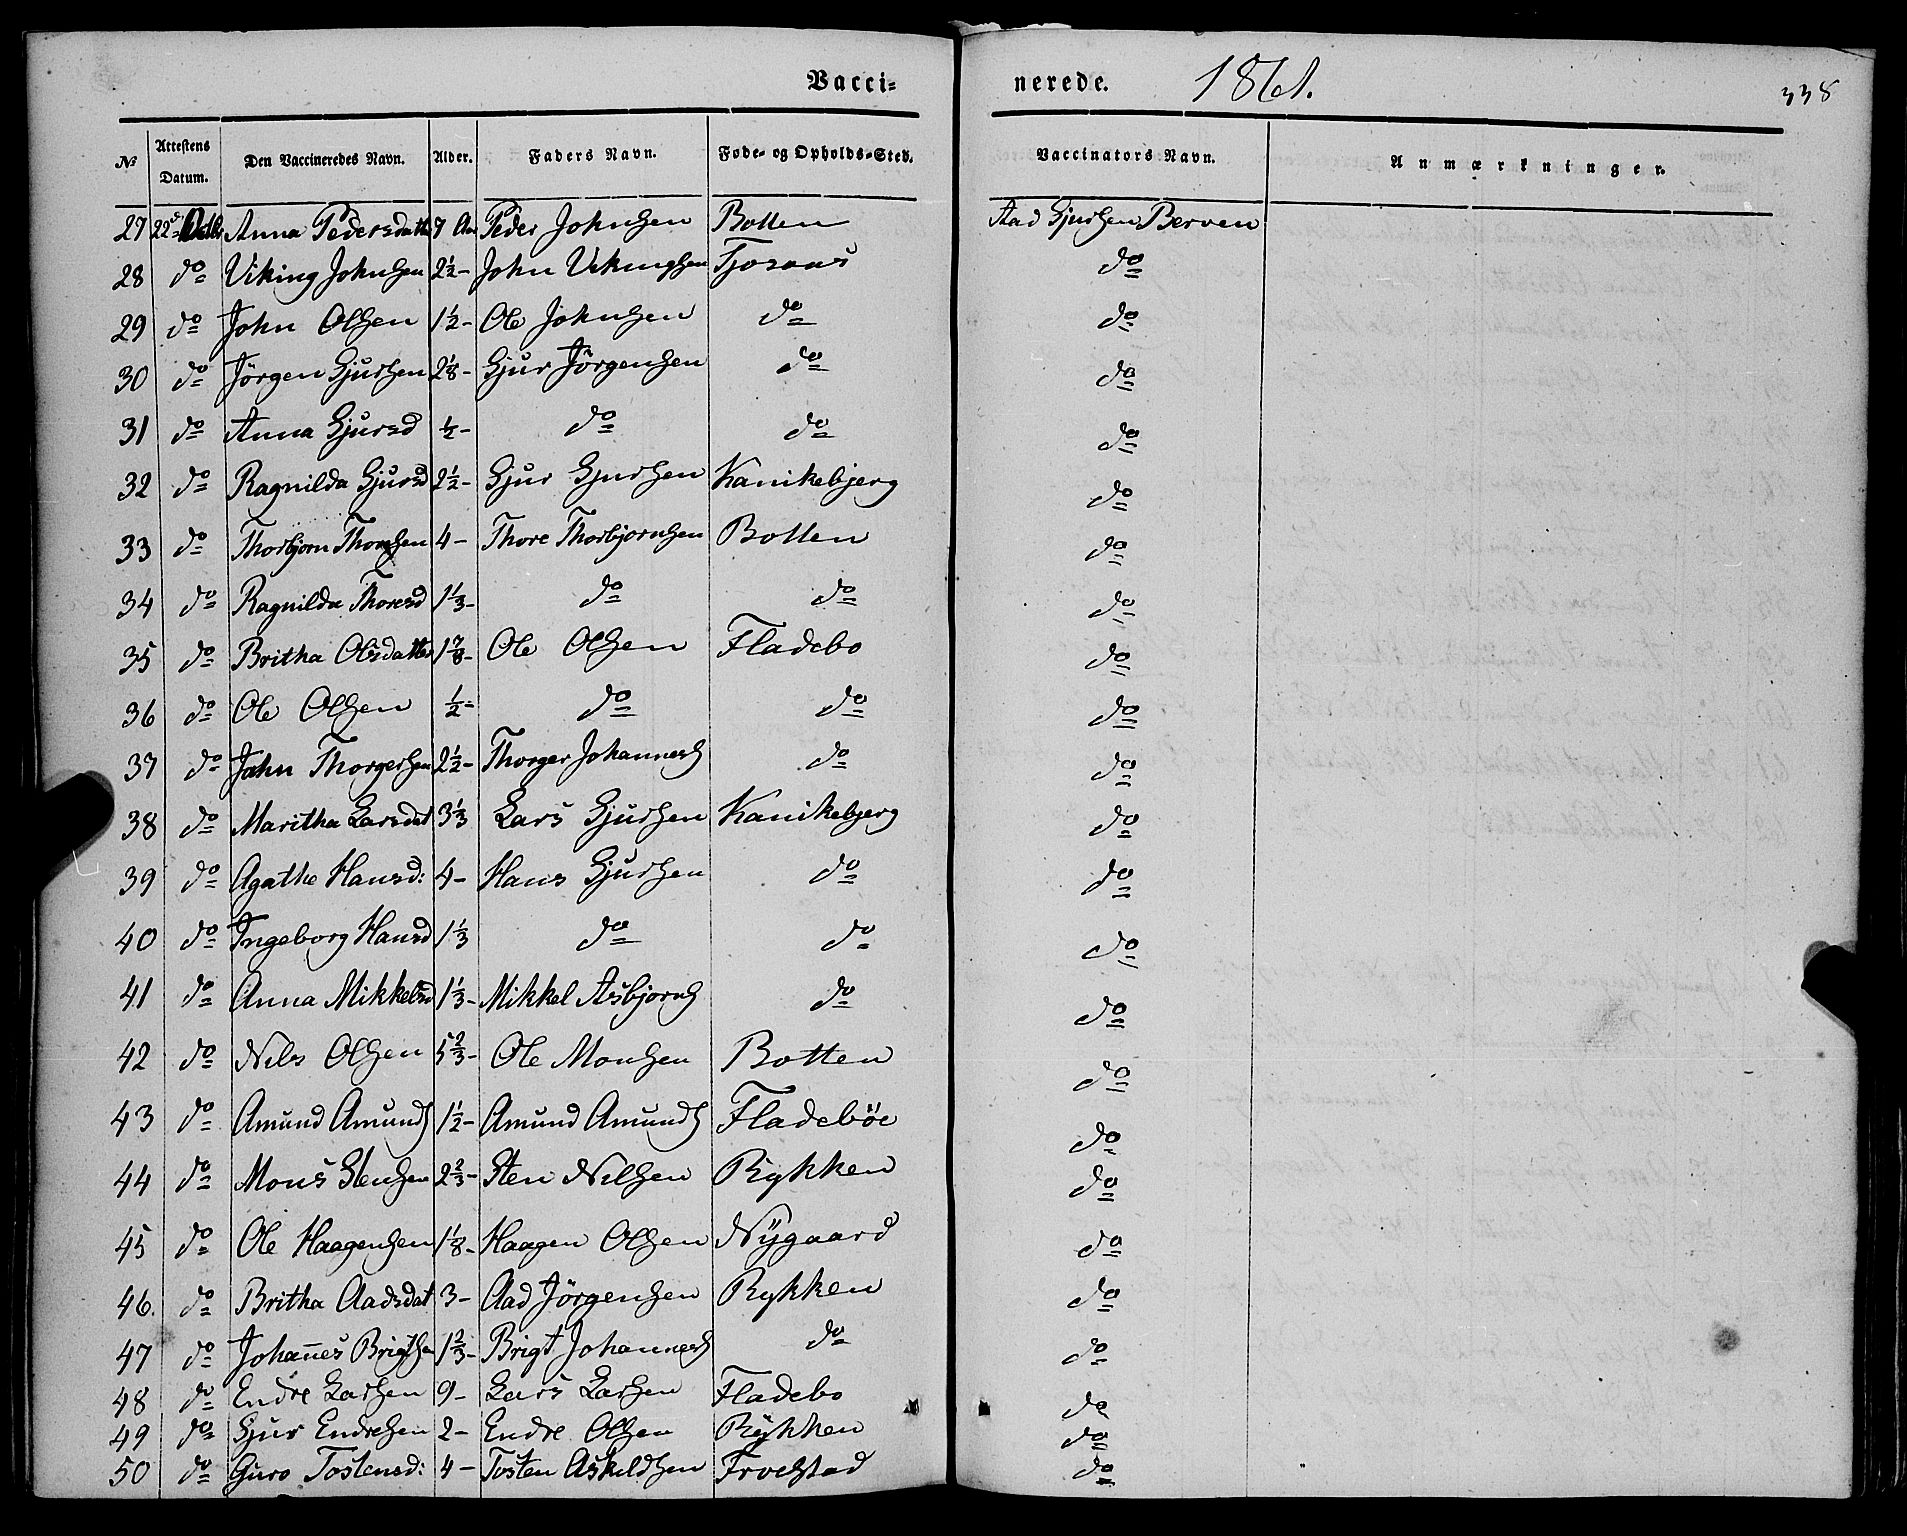 Vaccinerede. 1861. 338
№ Attestens Datum. Den Vaccineredes Navn. Alder. Faders Navn. Føde- og Opholds-Sted. Vaccinators Navn. Anmærkninger.
27 22de Anna Pedersdatt 7 Aar Peder Johnsen Botten Aad Gjursen Berven
28 do Viking Johnsen 2½ - John Vikingsen Tjoraas do
29 do John Olsen 1½ - Ole Johnsen do do
30 do Jørgen Gjursen 2⅛ - Gjur Jørgensen do do
31 do Anna Gjursd ½ - do do do
32 do Ragnilda Gjursd 2½ - Gjur Gjursen Kanikebjerg do
33 do Thorbjørn Thorsen 4 - Thore Thorbjørnsen Botten do
34 do Ragnilda Thoresd 1⅓ - do do do
35 do Britha Olsdatter 1⅞ - Ole Olsen Fladebo do
36 do Ole Olsen ½ - do do do
37 do John Thorgersen 2½ - Thorger Johannes do do
38 do Maritha Larsdat 3⅓ Lars Gjursen Kanikebjerg do
39 do Agathe Hansd: 4 - Hans Gjursen do do
40 do Ingeborg Hansd 1⅓ do do do
41 do Anna Mikkelsd 1⅓ - Mikkel Asbjørns do do
42 do Nils Olsen 5⅔ - Ole Monsen Botten do
43 do Amund Amunds 1½ - Amund Amunds Fladebøe do
44 do Mons Stensen 2⅔ - Sten Nilsen Rykken do
45 do Ole Haagensen 1⅛ - Haagen Olsen Nygaard do
46. do Britha Aadsdat 3 - Aad Jørgensen Rykken do
47 do Johannes Brigtsen 1⅔ - Brigt Johannes do do
48 do Endre Larsen 9 - Lars Larsen Fladebo do
49 do Gjur Endresen 2 - Endre Olsen Rykken do
50 do Guro Tostensd: 4 - Tosten Askeldsen Froestad do